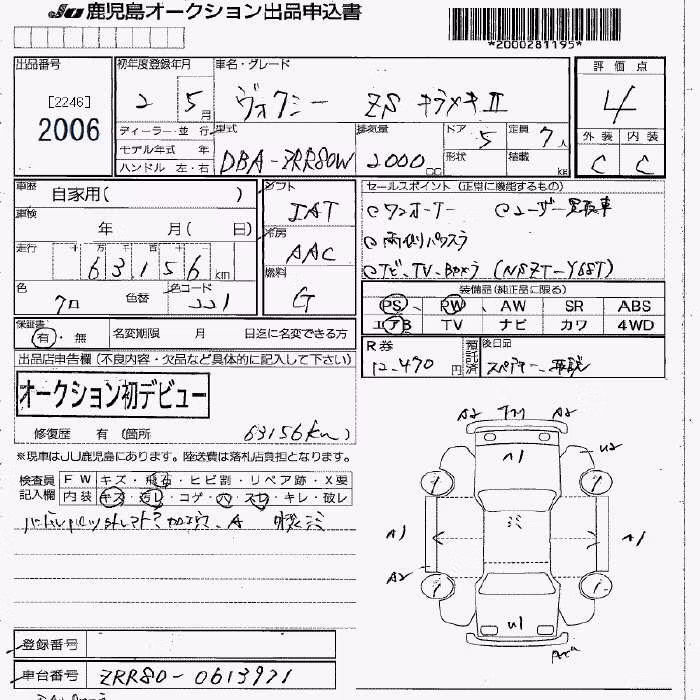 JU 鹿児島オークション出品申込書
*2000281195*
出品番号
[2246]
2006
初年度登録年月
2 5 月
車名・グレード
ヴォクシー ZS キラメキⅡ
評価点
4
外装 内装
C C
ディーラー・並行
モデル年式 年
ハンドル 左・右
型式
DBA-ZRR80W
排気量
2000 cc
ドア 5
形状
定員 7人
積載 kg
車歴
自家用( )
車検
年 月( 日)
走行 十 万 千 百 十
63156 km
色
クロ
色替
色コード
シフト
IAT
冷房
AAC
燃料
G
セールスポイント (正常に機能するもの)
ワンオーナー ユーザー買取車
両側パワスラ
ナビ、TV、Bカメラ (NSZT-Y68T)
装備品(純正品に限る)
PS、 PW、 AW SR ABS
エアB TV ナビ カワ 4WD
保証書
有・無
名変期限 月 日迄に名変できる方
R券
12,470 円
預託済
後日品
出品店申告欄(不良内容・欠品など具体的に記入して下さい)
オークション初デビュー
修復歴 有 (箇所 63156km)
※現車はJU鹿児島にあります。陸送費は落札店負担となります。
検査員記入欄
FW キズ・飛石・ヒビ割・リペア跡・X要
内装 キズ・汚レ・コゲ・穴・スレ・キレ・破レ
A2 A2
A1
U2
ミミ
A1
A1
A2
U1
登録番号
車台番号
ZRR80-0613971